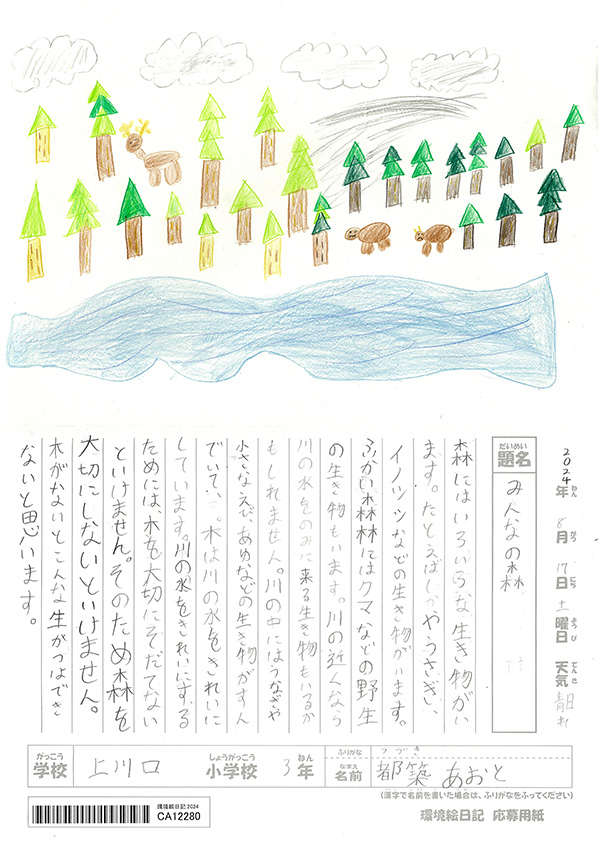 2024年 8月 17日 土曜日 天気 晴れ
ねん がつ にち ようび てんき
だいめい
題名 みんなの森
森にはいろいろな生き物がい
ます。たとえばしかやうさぎ、
イノシシなどの生き物がいます。
ふかい森林にはクマなどの野生
の生き物もいます。川の近くなら
川の水をのみに来る生き物もいるか
もしれません。川の中にはうなぎや
小さなえび、あゆなどの生き物がすん
でいて、木は川の水をきれいに
しています。川の水をきれいにする
ためには、木を大切にそだてない
といけません。そのため森を
大切にしないといけません。
木がないとこんな生かつはでき
ないと思います。
がっこう しょうがっこう ねん ふりがな つづき
学校 上川口 小学校 3年 なまえ 名前 都築 あおと
(漢字で名前を書いた場合は、ふりがなをふってください)
環境絵日記 応募用紙
環境絵日記 2024
CA12280